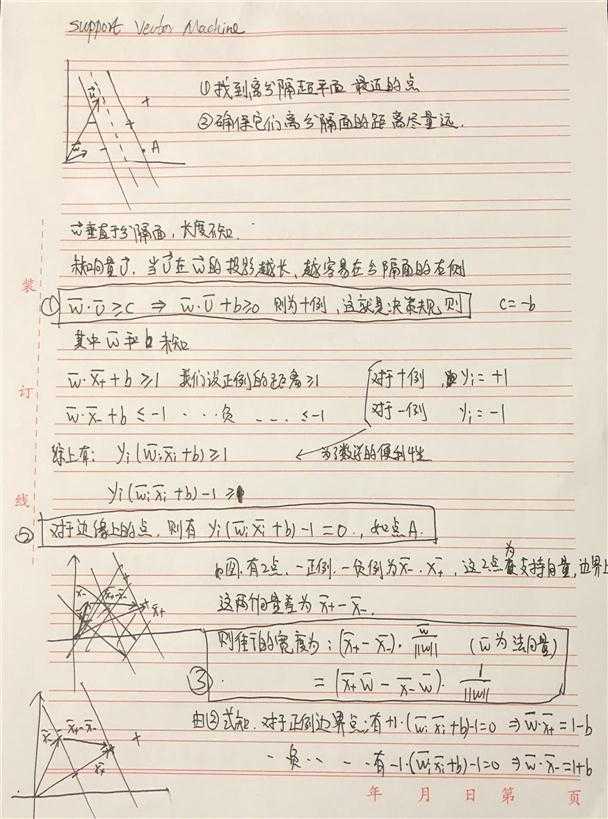 Support Vector Machine
①找到离分隔超平面 最近的点
②确保它们离分隔面的距离尽量远.
w⃗ + + - A
w⃗垂直于分隔面, 长度不知.
未知向量U⃗. 当U⃗在w⃗的投影越长, 越容易在分隔面的右侧
装
① w̄·ū≥c ⇒ w̄·ū+b≥0 则为+例, 这就是决策规则 c=-b
其中w̄和b未知
订
w̄·x̄₊+b≥1 我们设正例的距离≥1 对于+例, yᵢ=+1
w̄·x̄₋+b≤-1 ...负 .... ≤-1 对于-例 yᵢ=-1
综上有: yᵢ(w̄·x̄ᵢ+b)≥1 ← 为了数学的便利性
线
yᵢ(w̄·x̄ᵢ+b)-1≥
② 对于边缘上的点, 则有 yᵢ(w̄·x̄ᵢ+b)-1=0., 如点A.
如图. 有2点, 一正例. 一负例为x̄₋. x̄₊, 这2点为支持向量, 边界上
x̄₋ x̄₊-x̄₋ x̄₊ +
这两个向量差为 x̄₊-x̄₋.
③ 则街的宽度为: (x̄₊-x̄₋)·w̄/||w|| (w̄为法向量)
=(x̄₊w̄-x̄₋w̄)·1/||w||
x̄₋ x̄₊-x̄₋ x̄₊ +
由②式知. 对于正例边界点: 有+1·(w̄·x̄ᵢ+b)-1=0 ⇒ w̄·x̄₊=1-b
..负.. .. 有-1·(w̄·x̄ᵢ+b)-1=0 ⇒ w̄·x̄₋=1+b
年 月 日 第 页